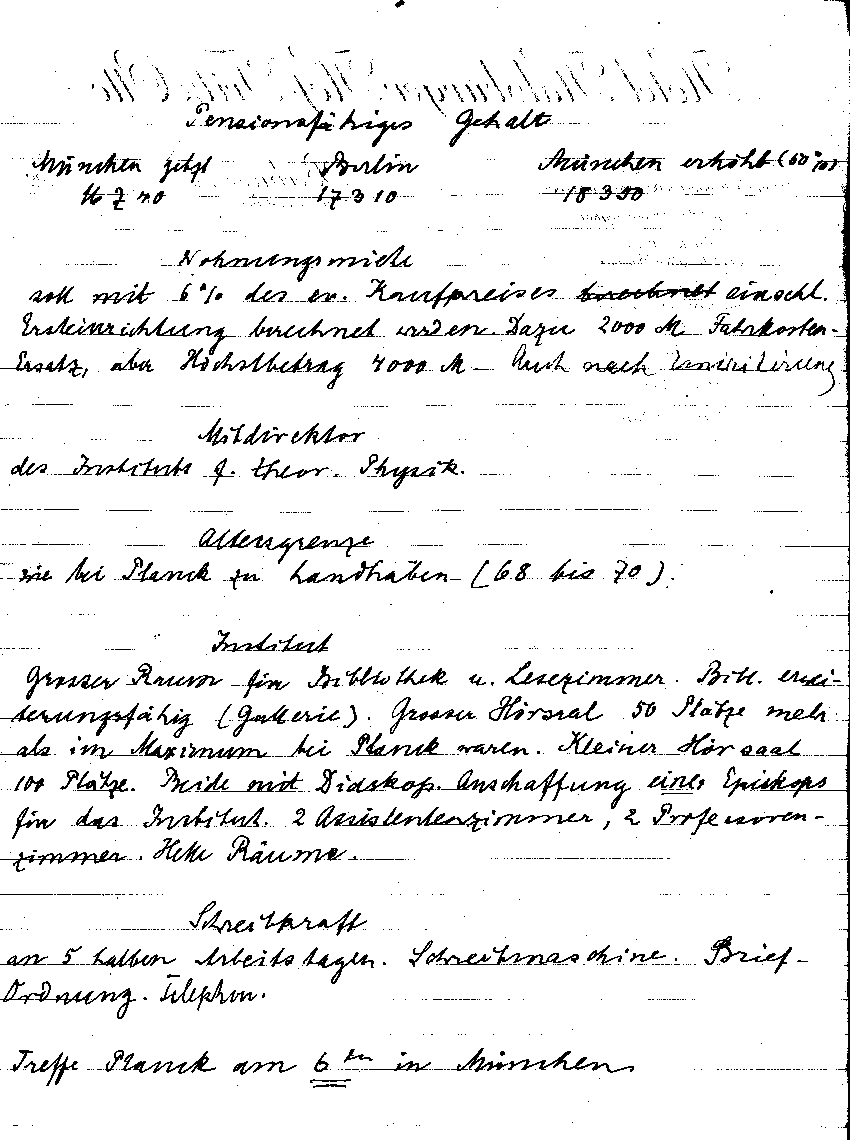 Pensionsfähiges Gehalt
München jetzt Berlin München erhöht (60%)
16740 17310 18390
Wohnungsmiete
soll mit 6% des ev. Kaufpreises berechnet einschl.
Ersteinrichtung berechnet werden. Dazu 2000 M Fahrkosten-
Ersatz, aber Höchstbetrag 4000 M – Auch nach Emeritierung
Mitdirektor
des Instituts f. theor. Physik.
Altersgrenze
wie bei Planck zu handhaben (68 bis 70).
Institut
Grosser Raum für Bibliothek u. Lesezimmer. Bibl. erwei-
terungsfähig (Gallerie). Grosser Hörsaal 50 Plätze mehr
als im Maximum bei Planck waren. Kleiner Hörsaal
100 Plätze. Beide mit Diaskop. Anschaffung eines Episkops
für das Institut. 2 Assistentenzimmer, 2 Professoren-
zimmer. Helle Räume.
Schreibkraft
an 5 halben Arbeitstagen. Schreibmaschine. Brief-
Ordnung. Telephon.
Treffe Planck am 6ten in München